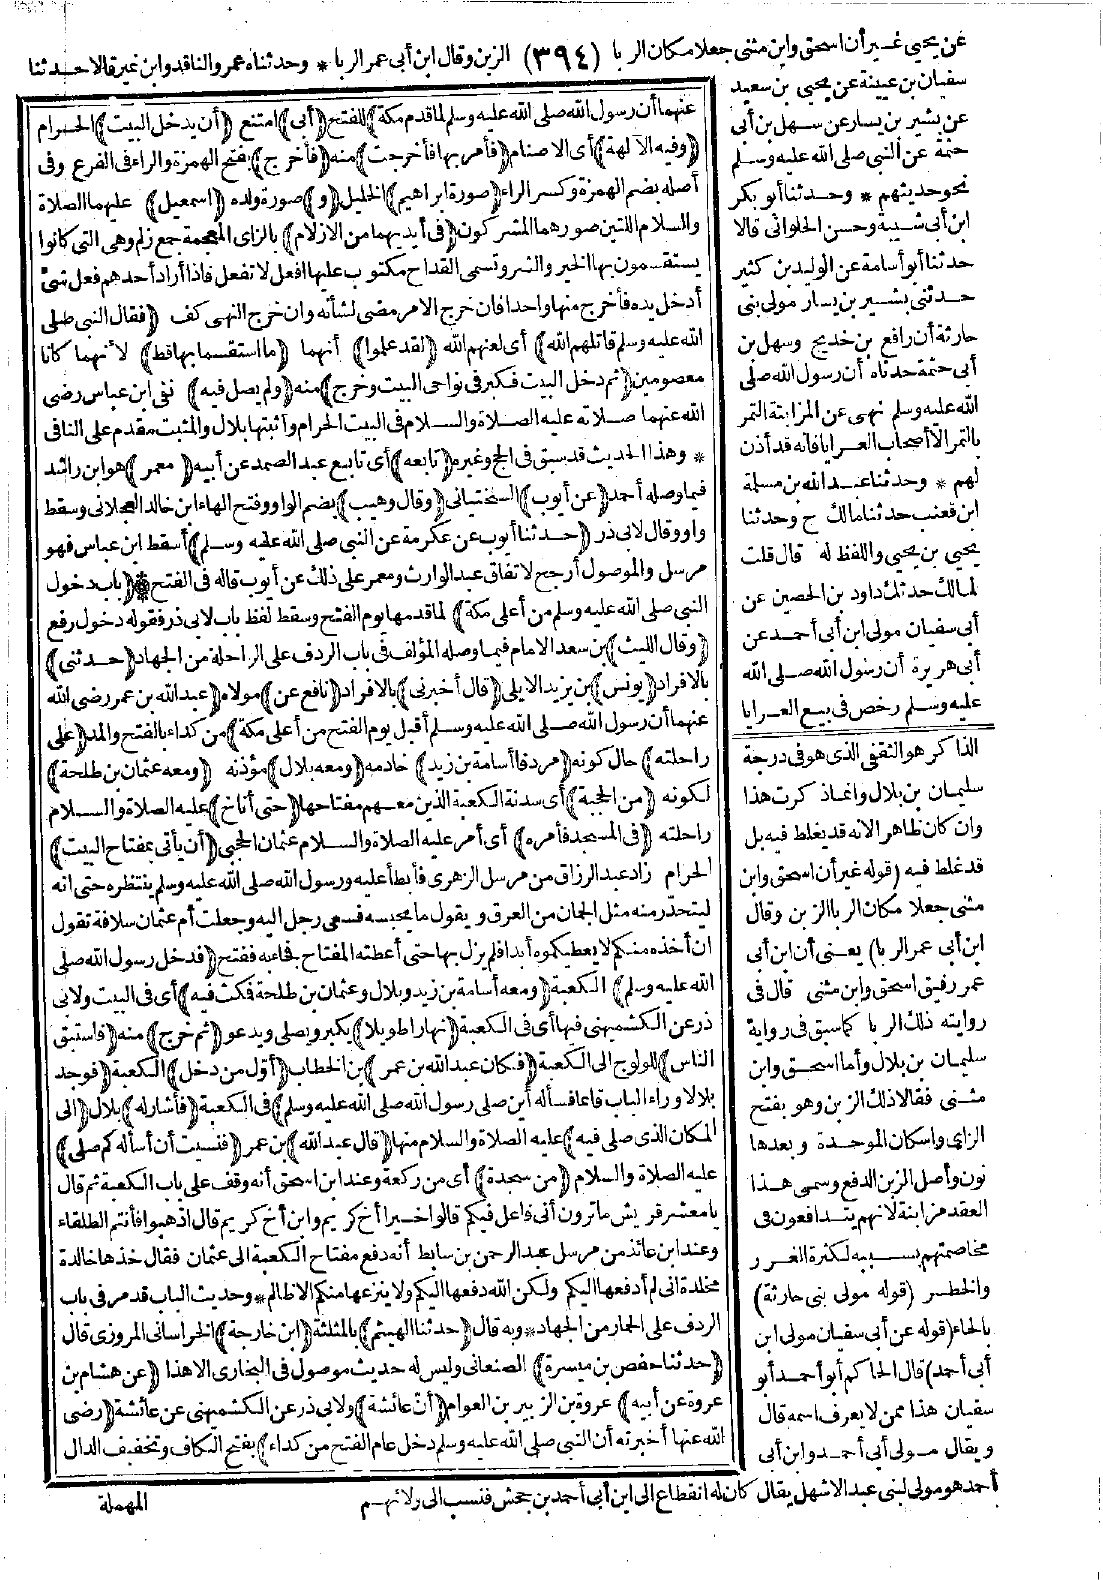 عن يحيى غير أن اسحق وابن مثنى جعلا مكان الربا (٣٩٤) الزبن وقال ابن أبى عمر الربا * وحدثناه عمرو الناقد وابن نمير قالا حدثنا
سفيان بن عيينة عن يحيى بن سعيد
عن بشير بن يسار عن سهل بن أبى
حثمة عن النبى صلى الله عليه وسلم
نحو حديثهم * وحدثنا أبو بكر
ابن أبى شيبة وحسن الحلوانى قالا
حدثنا أبو أسامة عن الوليد بن كثير
حدثنى بشير بن يسار مولى بنى
حارثة أن رافع بن خديج وسهل بن
أبى حثمة حدثاه أن رسول الله صلى
الله عليه وسلم نهى عن المزابنة التمر
بالتمر الا أصحاب العرايا فانه قد أذن
لهم * وحدثنا عبد الله بن مسلمة
ابن قعنب حدثنا مالك ح وحدثنا
يحيى بن يحيى واللفظ له قال قلت
لمالك حدثك داود بن الحصين عن
أبى سفيان مولى ابن أبى أحمد عن
أبى هريرة أن رسول الله صلى الله
عليه وسلم رخص فى بيع العرايا
الذاكر هو الثقفى الذى هو فى درجة
سليمان بن بلال وانما ذكرت هذا
وان كان ظاهرا لانه قد يغلط فيه بل
قد غلط فيه (قوله غير أن اسحق وابن
مثنى جعلا مكان الربا الزبن وقال
ابن أبى عمر الربا) يعنى أن ابن أبى
عمر رفيق اسحق وابن مثنى قال فى
روايته ذلك الربا كما سبق فى رواية
سليمان بن بلال وأما اسحق وابن
مثنى فقالا ذلك الزبن وهو بفتح
الزاى واسكان الموحدة وبعدها
نون وأصل الزبن الدفع وسمى هذا
العقد مزابنة لانهم يتدافعون فى
مخاصمتهم بسببه لكثرة الغرر
والخطر (قوله مولى بنى حارثة)
بالحاء (قوله عن أبى سفيان مولى ابن
أبى أحمد) قال الحاكم أبو أحمد أبو
سفيان هذا ممن لا يعرف اسمه قال
ويقال مولى أبى أحمد وابن أبى
أحمد هو مولى لبنى عبد الاشهل يقال كان له انقطاع الى ابن أبى أحمد بن جحش فنسب الى ولائهم
عنهما أن رسول الله صلى الله عليه وسلم لما قدم مكة) للفتح (أبى) امتنع (أن يدخل البيت) الحرام
(وفيه الآلهة) أى الاصنام (فأمر بها فأخرجت) منه (فأخرج) بفتح الهمزة والراء فى الفرع وفى
أصله بضم الهمزة وكسر الراء (صورة ابراهيم) الخليل (و) صورة ولده (اسمعيل) عليهما الصلاة
والسلام اللتين صورهما المشركون (فى أيديهما من الازلام) بالزاى المعجمة جمع زلم وهى التى كانوا
يستقسمون بها الخير والشر وتسمى القداح مكتوب عليها افعل لا تفعل فاذا أراد أحدهم فعل شئ
أدخل يده فأخرج منها واحدا فان خرج الامر مضى لشأنه وان خرج النهى كف (فقال النبى صلى
الله عليه وسلم قاتلهم الله) أى لعنهم الله (لقد علموا) أنهما (ما استقسما بها قط) لأنهما كانا
معصومين (ثم دخل البيت فكبر فى نواحى البيت وخرج) منه (ولم يصل فيه) نفى ابن عباس رضى
الله عنهما صلاته عليه الصلاة والسلام فى البيت الحرام وأثبتها بلال والمثبت مقدم على النافى
* وهذا الحديث قد سبق فى الحج وغيره (تابعه) أى تابع عبد الصمد عن أبيه (معمر) هو ابن راشد
فيما وصله أحمد (عن أيوب) السختيانى (وقال وهيب) بضم الواو وفتح الهاء ابن خالد العجلانى وسقط
واو وقال لابى ذر (حدثنا أيوب عن عكرمة عن النبى صلى الله عليه وسلم) أسقط ابن عباس فهو
مرسل والموصول أرجح لاتفاق عبد الوارث ومعمر على ذلك عن أيوب قاله فى الفتح * (باب دخول
النبى صلى الله عليه وسلم من أعلى مكة) لما قدمها يوم الفتح وسقط لفظ باب لابى ذر فقوله دخول رفع
(وقال الليث) بن سعد الامام فيما وصله المؤلف فى باب الردف على الراحلة من الجهاد (حدثنى)
بالافراد (يونس) بن يزيد الايلى (قال أخبرنى) بالافراد (نافع عن) مولاه (عبد الله بن عمر رضى الله
عنهما أن رسول الله صلى الله عليه وسلم أقبل يوم الفتح من أعلى مكة) من كداء بالفتح والمد (على
راحلته) حال كونه (مردفا أسامة بن زيد) خادمه (ومعه بلال) مؤذنه (ومعه عثمان بن طلحة)
لكونه (من الحجبة) أى سدنة الكعبة الذين معهم مفتاحها (حتى أناخ) عليه الصلاة والسلام
راحلته (فى المسجد فأمره) أى أمر عليه الصلاة والسلام عثمان الحجبى (أن يأتى بمفتاح البيت)
الحرام زاد عبد الرزاق من مرسل الزهرى فأبطأ عليه ورسول الله صلى الله عليه وسلم ينتظره حتى انه
ليتحدر منه مثل الجمان من العرق ويقول ما يحبسه فسعى رجل اليه وجعلت أم عثمان سلافة تقول
ان أخذه منكم لا يعطيكموه أبدا فلم يزل بها حتى أعطته المفتاح فجاء به ففتح (فدخل رسول الله صلى
الله عليه وسلم) الكعبة (ومعه أسامة بن زيد وبلال وعثمان بن طلحة فمكث فيه) أى فى البيت ولابى
ذر عن الكشميهنى فيها أى فى الكعبة (نهارا طويلا) يكبر ويصلى ويدعو (ثم خرج) منه (فاستبق
الناس) للولوج الى الكعبة (فكان عبد الله بن عمر) بن الخطاب (أول من دخل) الكعبة (فوجد
بلالا وراء الباب قائما فسأله أين صلى رسول الله صلى الله عليه وسلم) فى الكعبة (فأشار له) بلال (الى
المكان الذى صلى فيه) عليه الصلاة والسلام منها (قال عبد الله) بن عمر (فنسيت أن أسأله كم صلى)
عليه الصلاة والسلام (من سجدة) أى من ركعة وعند ابن اسحق أنه وقف على باب الكعبة ثم قال
يا معشر قريش ما ترون أنى فاعل فيكم قالوا خيرا أخ كريم وابن أخ كريم قال اذهبوا فأنتم الطلقاء
وعند ابن عائذ من مرسل عبد الرحمن بن سابط أنه دفع مفتاح الكعبة الى عثمان فقال خذها خالدة
مخلدة انى لم أدفعها اليكم ولكن الله دفعها اليكم ولا ينزعها منكم الا ظالم * وحديث الباب قد مر فى باب
الردف على الحمار من الجهاد * وبه قال (حدثنا الهيثم) بالمثلثة (ابن خارجة) الخراسانى المروزى قال
(حدثنا حفص بن ميسرة) الصنعانى وليس له حديث موصول فى البخارى الا هذا (عن هشام بن
عروة عن أبيه) عروة بن الزبير بن العوام (أن عائشة) ولابى ذر عن الكشميهنى عن عائشة (رضى
الله عنها أخبرته أن النبى صلى الله عليه وسلم دخل عام الفتح من كداء) بفتح الكاف وتخفيف الدال
المهملة